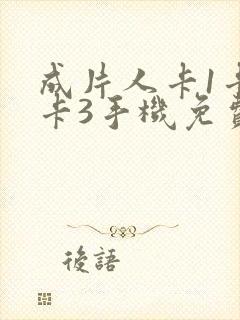 成片人卡1卡
卡3手機免費
後語